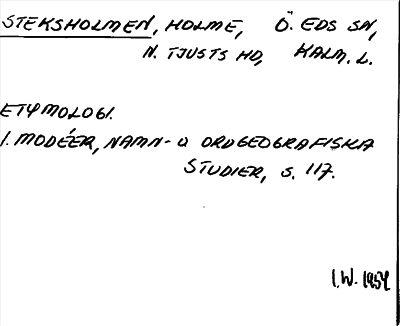 STEKSHOLMEN, HOLME, Ö. EDS SN,
N. TJUSTS HD, KALM. L.
ETYMOLOGI.
I. MODÉER, NAMN- O ORDGEOGRAFISKA
STUDIER, S. 117.
I.W. 1954